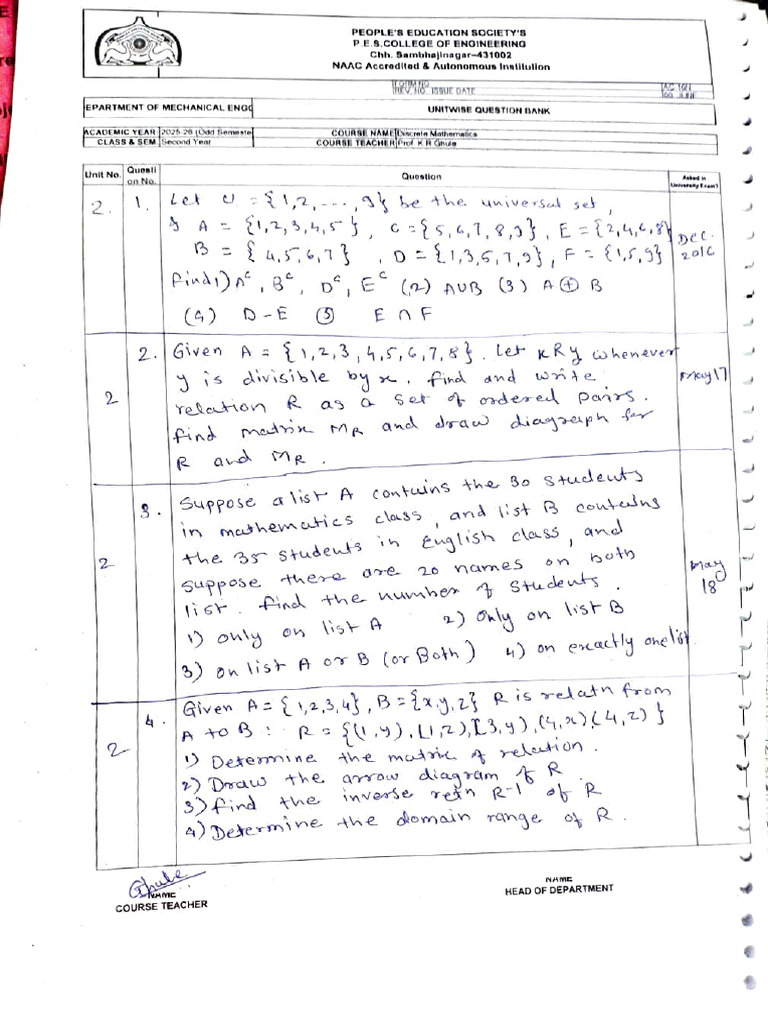 PEOPLE'S EDUCATION SOCIETY'S
P.E.S.COLLEGE OF ENGINEERING
Chh. Sambhajinagar–431002
NAAC Accredited & Autonomous Institution
FORM NO
REV. NO. ISSUE DATE
EPARTMENT OF MECHANICAL ENGG
UNITWISE QUESTION BANK
ACADEMIC YEAR 2025-26 (Odd Semeste COURSE NAME Discrete Mathematics
CLASS & SEM Second Year COURSE TEACHER Prof K R Ghule
Unit No. Questi on No. Question Asked in University Exam?
2. 1. Let U = {1,2,...,9} be the universal set,
& A = {1,2,3,4,5}, C = {5,6,7,8,9}, E = {2,4,6,8}
B = {4,5,6,7}, D = {1,3,5,7,9}, F = {1,5,9}
Dec. 2016
find 1) Aᶜ, Bᶜ, Dᶜ, Eᶜ (2) A∪B (3) A ⊕ B
(4) D-E ⑤ E ∩ F
2 2. Given A = {1,2,3,4,5,6,7,8}. Let xRy whenever
y is divisible by x. find and write
May 17
relation R as a set of ordered pairs.
find matrix MR and draw diagraph for
R and MR.
2 3. Suppose a list A contains the 30 students
in mathematics class, and list B contains
the 35 students in English class, and
suppose there are 20 names on both
list. find the number of students.
May 18
1) only on list A 2) only on list B
3) on list A or B (or Both) 4) on exactly one list
2 4. Given A = {1,2,3,4}, B = {x,y,z} R is relatn from
A to B : R = {(1,y), (1,z), (3,y), (4,x) (4,z)}
1) Determine the matrix of relation.
2) Draw the arrow diagram of R
3) find the inverse reln R-1 of R
4) Determine the domain range of R.
Ghule
NAME
COURSE TEACHER
NAME
HEAD OF DEPARTMENT